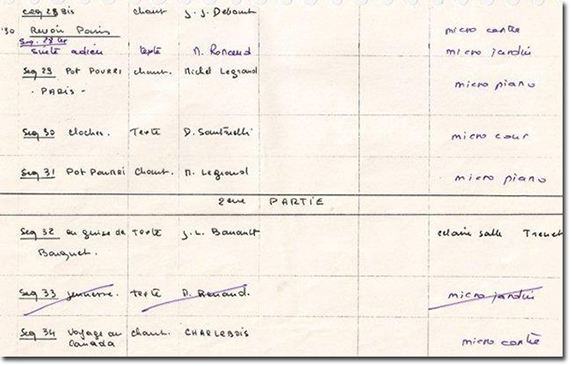 Seq 28 Bis chant J. J. Debout
'30 Revoir Paris micro centre
Seq. 28 ter
suite adieu texte M. Renaud micro jardin
Seq 29 Pot Pourri chant. Michel Legrand
- PARIS - micro piano
Seq 30 clocher Texte D. Santinelli micro cour
Seq 31 Pot Pourri chant. M. Legrand micro piano
2ème PARTIE
Seq 32 en guise de Texte J. L. Barrault eclair salle Trenet
Bouquet.
Seq 33 jeunesse. texte M. Renaud. micro jardin
Seq 34 Voyage au chant. CHARLEBOIS
Canada micro centre